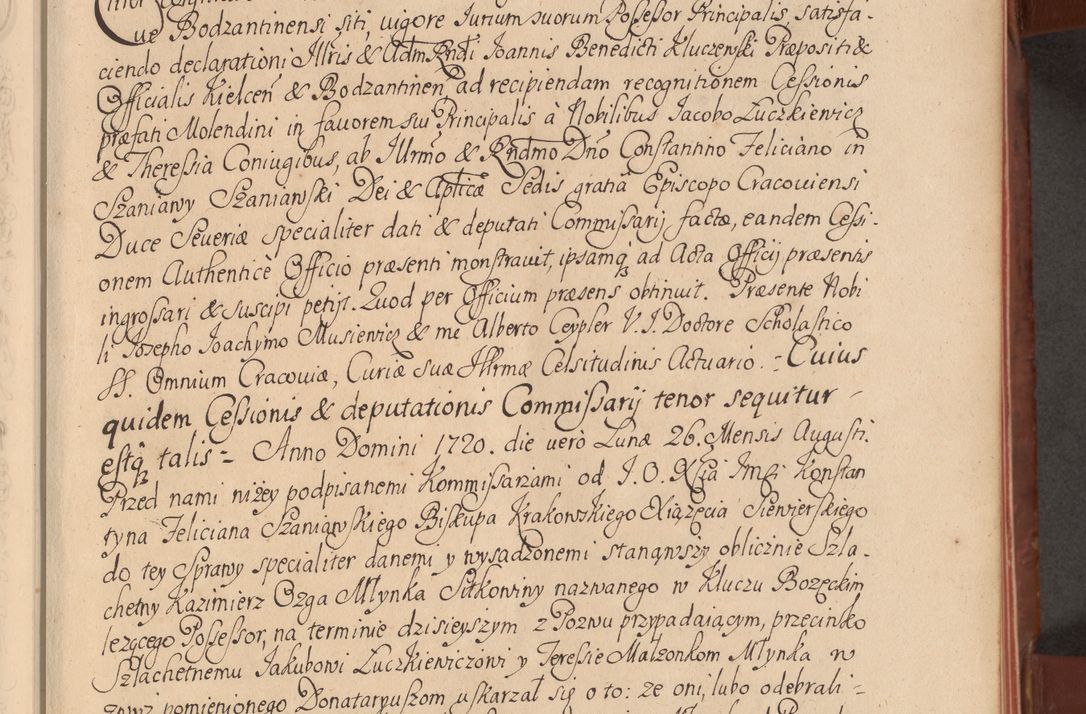 ve Bodzantinensi siti, vigore Jurium suorum Possessor Principalis, satisfa-
ciendo declarationi Illris & Adm Rndi Joannis Benedicti Kluczewski Præpositi &
Officialis Kielceń & Bodzantineń, ad recipiendam recognitionem Cessionis
præfati Molendini in favorem sui Principalis à Nobilibus Jacobo Łuczkiewicz
& Theressia Coniugibus, ab Illrmo & Rndmo Dno Constantino Feliciano in
Szaniawy Szaniawski Dei & Aplicæ Sedis gratiâ Episcopo Cracoviensi
Duce Severiæ specialiter dati & deputati Commissarij factæ, eandem Cessi-
onem Authenticè Officio præsenti monstravit, ipsamq ad Acta Officij præsentis
ingrossari & suscipi petijt. Quod per Officium præsens obtinuit. Præsente Nobi
li Josepho Joachymo Musiewicz & me Alberto Ceypler V. I. Doctore Scholastico
SS. Omnium Cracoviæ, Curiæ suæ Illrmæ Celsitudinis Actuario. = Cuius
quidem Cessionis & deputationis Commissarij tenor sequitur
estq talis = Anno Domini 1720. die verò Lunæ 26. Mensis Augusti.
Przed nami niżey podpisanemi Kommissarzami od J. O. Xcia Jmci Konstan
tyna Feliciana Szaniawskiego Biskupa Krakowskiego Xiążęcia Siewierskiego
do tey sprawy specialiter danemi y wysadzonemi stanąwszy oblicznie Szla-
chetny Kazimierz Ozga Młynka Sitkowiny nazwanego w Kluczu Bozęckim
lezącego Possessor, na terminie dzisieyszym z Pozwu przypadaiącym, przeciwko
Szlachetnemu Jakubowi Łuczkiewiczowi y Teressie Małzonkom Młynka w
zwyz pomienionego Donataryuszom uskarzał się o to: ze oni, lubo odebrali =